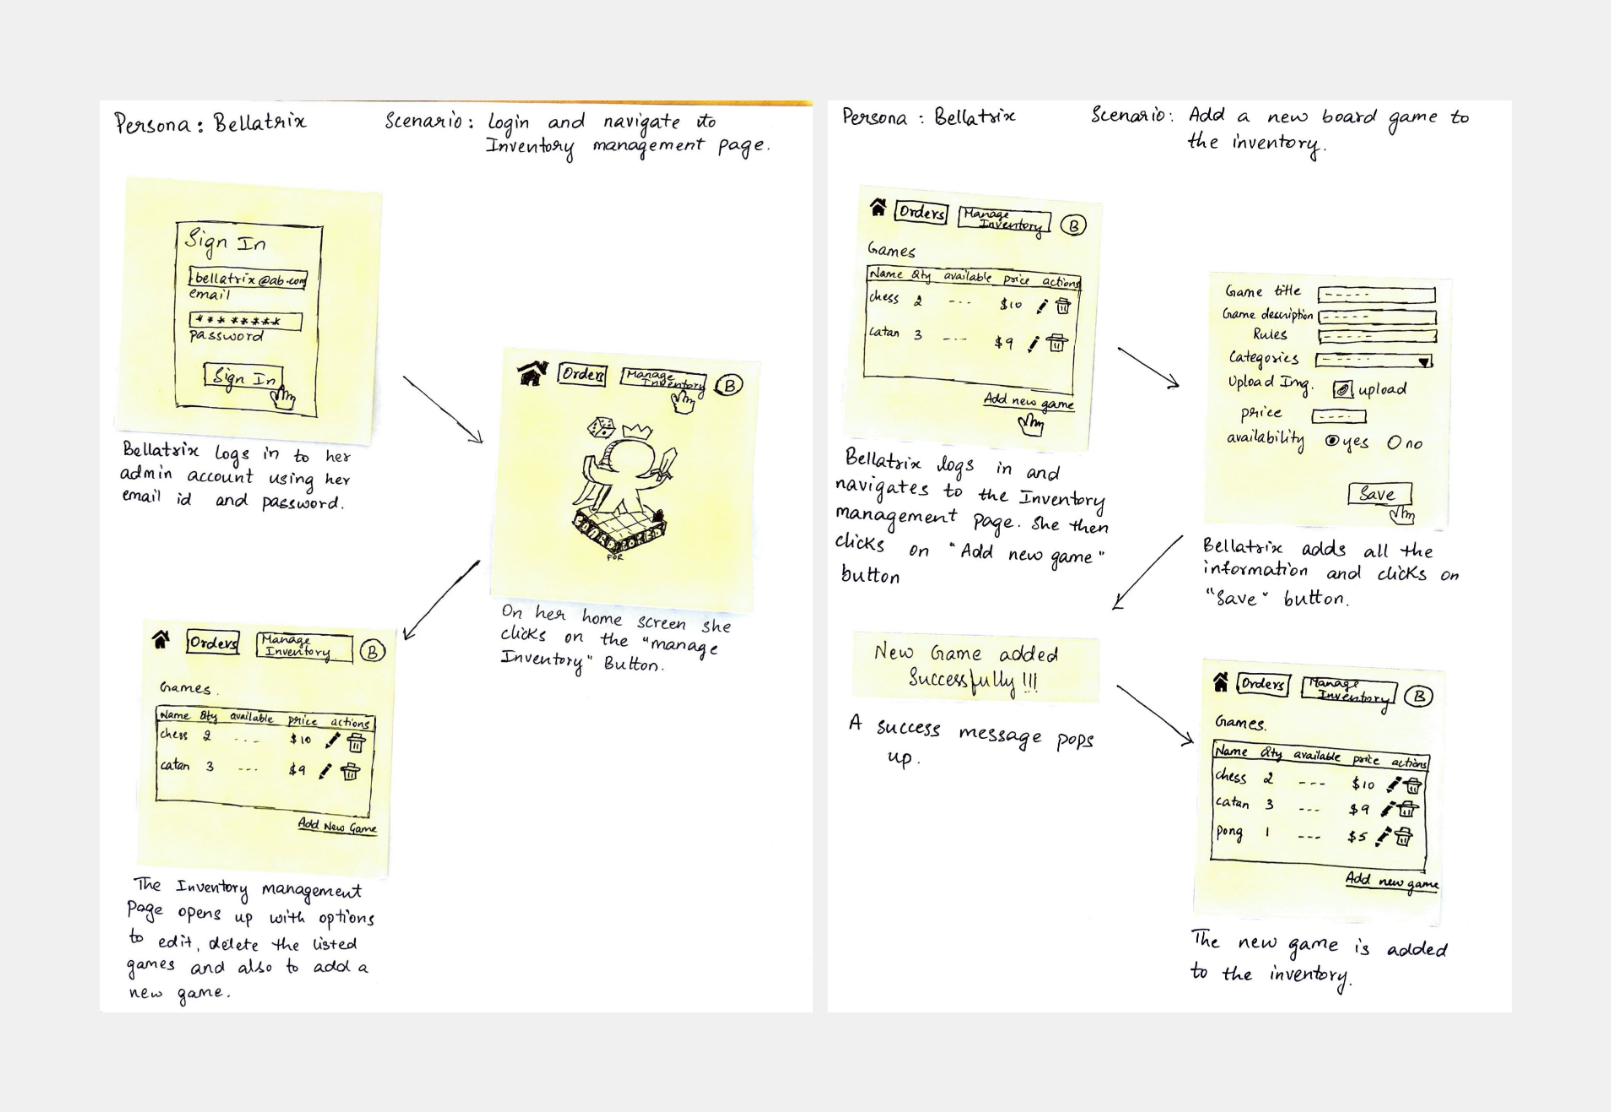 Persona: Bellatrix
Scenario: Login and navigate to
Inventory management page.
Sign In
bellatrix@ab.com
email
********
password
Sign In
Bellatrix logs in to her
admin account using her
email id and password.
Order
Manage
Inventory
B
FOR
On her home screen she
clicks on the "manage
Inventory" Button.
Orders
Manage
Inventory
B
Games.
Name Qty available price actions
chess 2 --- $10
catan 3 --- $9
Add New Game
The Inventory management
Page opens up with options
to edit, delete the listed
games and also to add a
new game.
Persona: Bellatrix
Scenario: Add a new board game to
the inventory.
Orders
Manage
Inventory
B
Games
Name Qty available price actions
chess 2 --- $10
catan 3 --- $9
Add new game
Bellatrix logs in and
navigates to the Inventory
management page. She then
clicks on "Add new game"
button
Game title -----
Game description -----
Rules -----
Categories -----
Upload Img. upload
price ----
availability yes no
Save
Bellatrix adds all the
information and clicks on
"Save" button.
New Game added
Successfully!!!
A success message pops
up.
Orders
Manage
Inventory
B
Games.
Name Qty available price actions
chess 2 --- $10
catan 3 --- $9
pong 1 --- $5
Add new game
The new game is added
to the inventory.